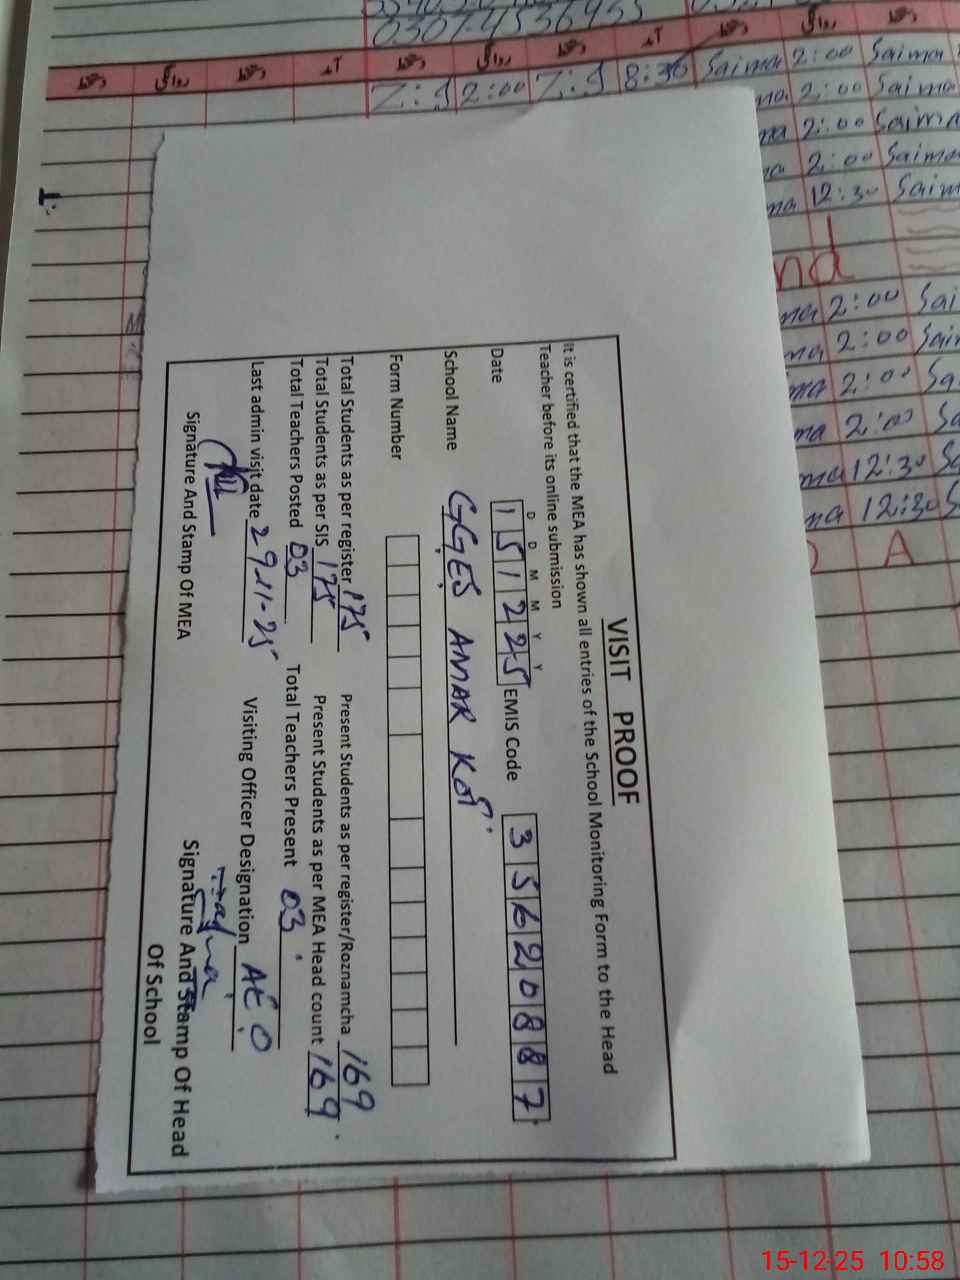 VISIT PROOF
It is certified that the MEA has shown all entries of the School Monitoring Form to the Head
Teacher before its online submission
D D M M Y Y
Date 151225 EMIS Code 35620887
School Name GGES AMAR KOT
Form Number
Total Students as per register 175 Present Students as per register/Roznamcha 169
Total Students as per SIS 175 Present Students as per MEA Head count 169
Total Teachers Posted 03 Total Teachers Present 03
Last admin visit date 29-11-25 Visiting Officer Designation AEO
Signature And Stamp Of MEA
Signature And Stamp Of Head
Of School
03074536455
Z:S 2:00 Z:S 8:30 Saima 2:00 Saima
2:00 Saima
2:00 Saima
2:00 Saima
12:30 Saim
2:00 Sai
2:00 Sai
2:00 Sa
2:00 Sa
12:30
12:30 S
A
15-12-25 10:58